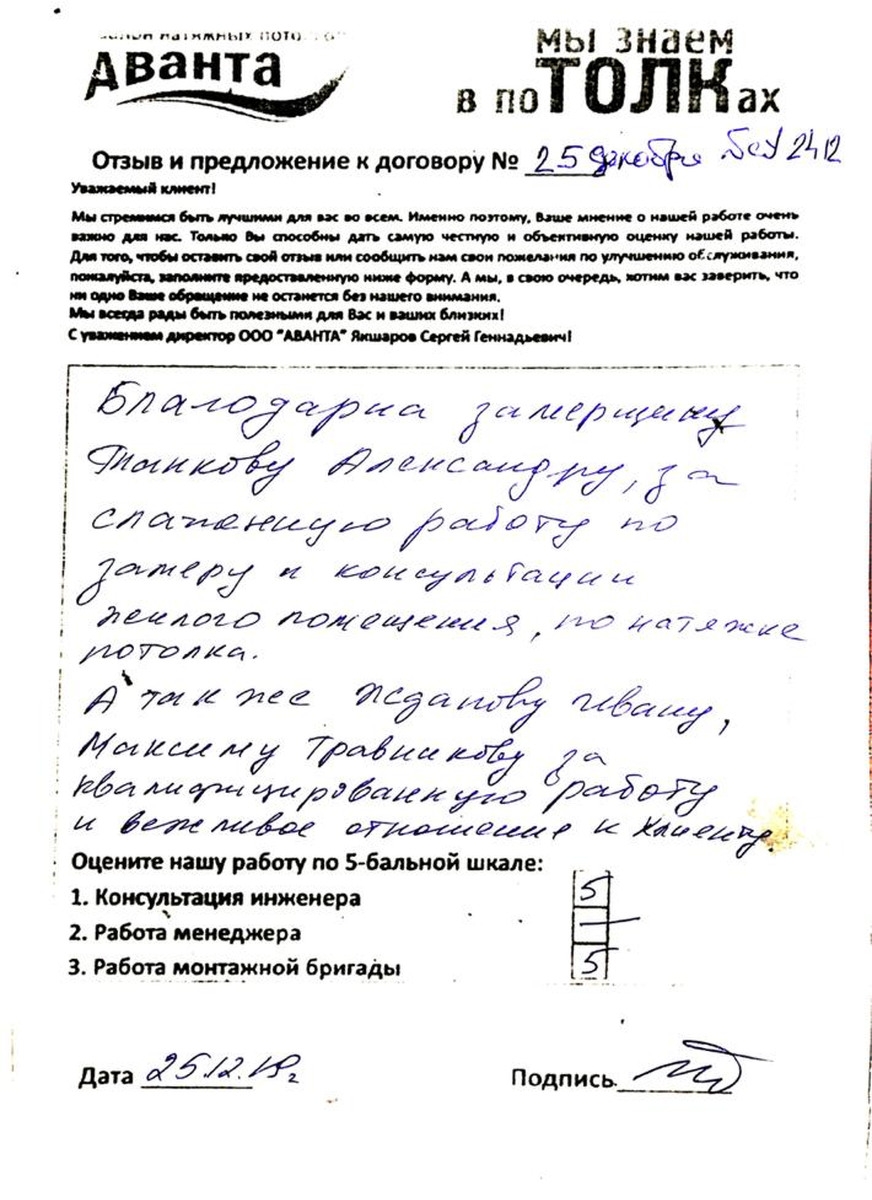 Аванта
мы знаем
в поТОЛКах
Отзыв и предложение к договору № 25 декабря 2412
Уважаемый клиент!
Мы стремимся быть лучшими для вас во всем. Именно поэтому, Ваше мнение о нашей работе очень
важно для нас. Только Вы способны дать самую честную и объективную оценку нашей работы.
Для того, чтобы оставить свой отзыв или сообщить нам свои пожелания по улучшению обслуживания,
пожалуйста, заполните предоставленную ниже форму. А мы, в свою очередь, хотим вас заверить, что
ни одно Ваше обращение не останется без нашего внимания.
Мы всегда рады быть полезными для Вас и ваших близких!
С уважением директор ООО "АВАНТА" Якшаров Сергей Геннадьевич!
Благодарна замерщику
Александру, за
слаженную работу по
замеру и консультации
жилого помещения, по натяжке
потолка.
А так же Жданову Ивану,
Максиму Травникову за
квалифицированную работу
и вежливое отношение к клиенту.
Оцените нашу работу по 5-бальной шкале:
1. Консультация инженера 5
2. Работа менеджера –
3. Работа монтажной бригады 5
Дата 25.12.19г Подпись